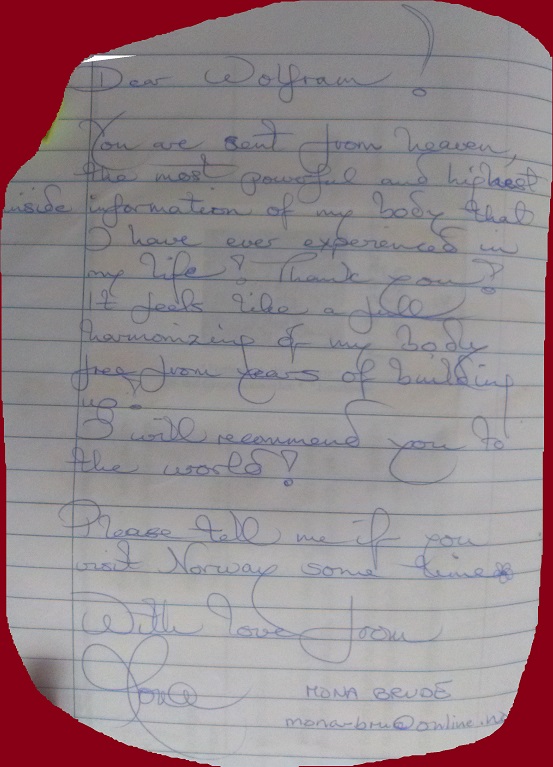 Dear Wolfram !
You are sent from heaven,
the most powerful and highest
inside information of my body that
I have ever experienced in
my life! Thank you!
It feels like a full
harmonizing of my body
free from years of building
up.
I will recommend you to
the world!
Please tell me if you
visit Norway some time
With love from
MONA BRUDE
mona-bru@online.n